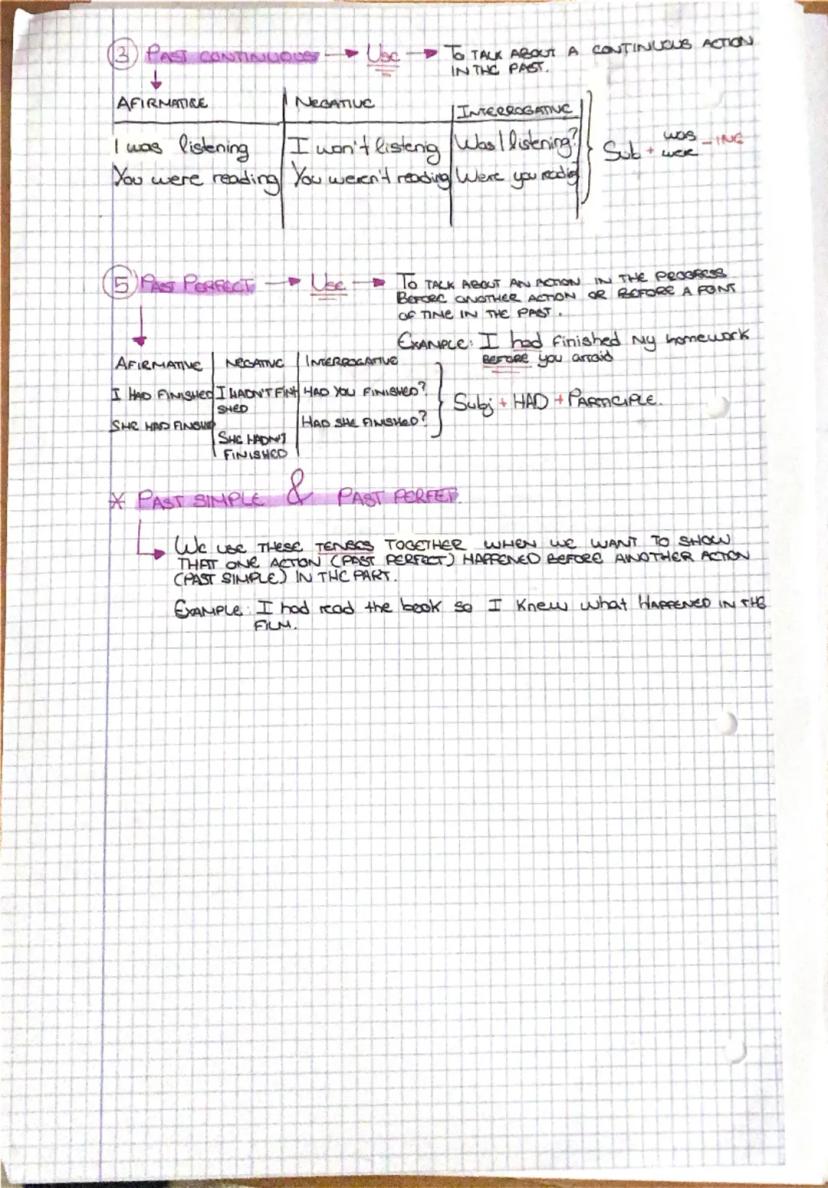 3 PAST CONTINUOUS → USE → TO TALK ABOUT A CONTINUOUS ACTION
IN THE PAST.
AFIRMATIVE NEGATIVE INTERROGATIVE
I was listening I won't listenig Was I listening?
You were reading You weren't reading Were you readig
Sub + was
were -ING
5 PAST PERFECT → USE → TO TALK ABOUT AN ACTION IN THE PROGRESS
BEFORE ANOTHER ACTION OR BEFORE A POINT
OF TIME IN THE PAST.
EXAMPLE: I had finished my homework
BEFORE you
AFIRMATIVE NEGATIVE INTERROGATIVE
I HAD FINISHED I HADN'T FINI HAD YOU FINISHED?
SHED
SHE HAD FINISHD HAD SHE FINISHED?
SHE HADN'T
FINISHED
Subj + HAD + PARTICIPLE.
* PAST SIMPLE & PAST PERFET.
WE USE THESE TENSES TOGETHER WHEN WE WANT TO SHOW
THAT ONE ACTION (PAST PERFECT) HAPPENED BEFORE ANOTHER ACTION
(PAST SIMPLE) IN THE PART.
EXAMPLE: I had read the book so I knew what HAPPENED IN THE
FILM.